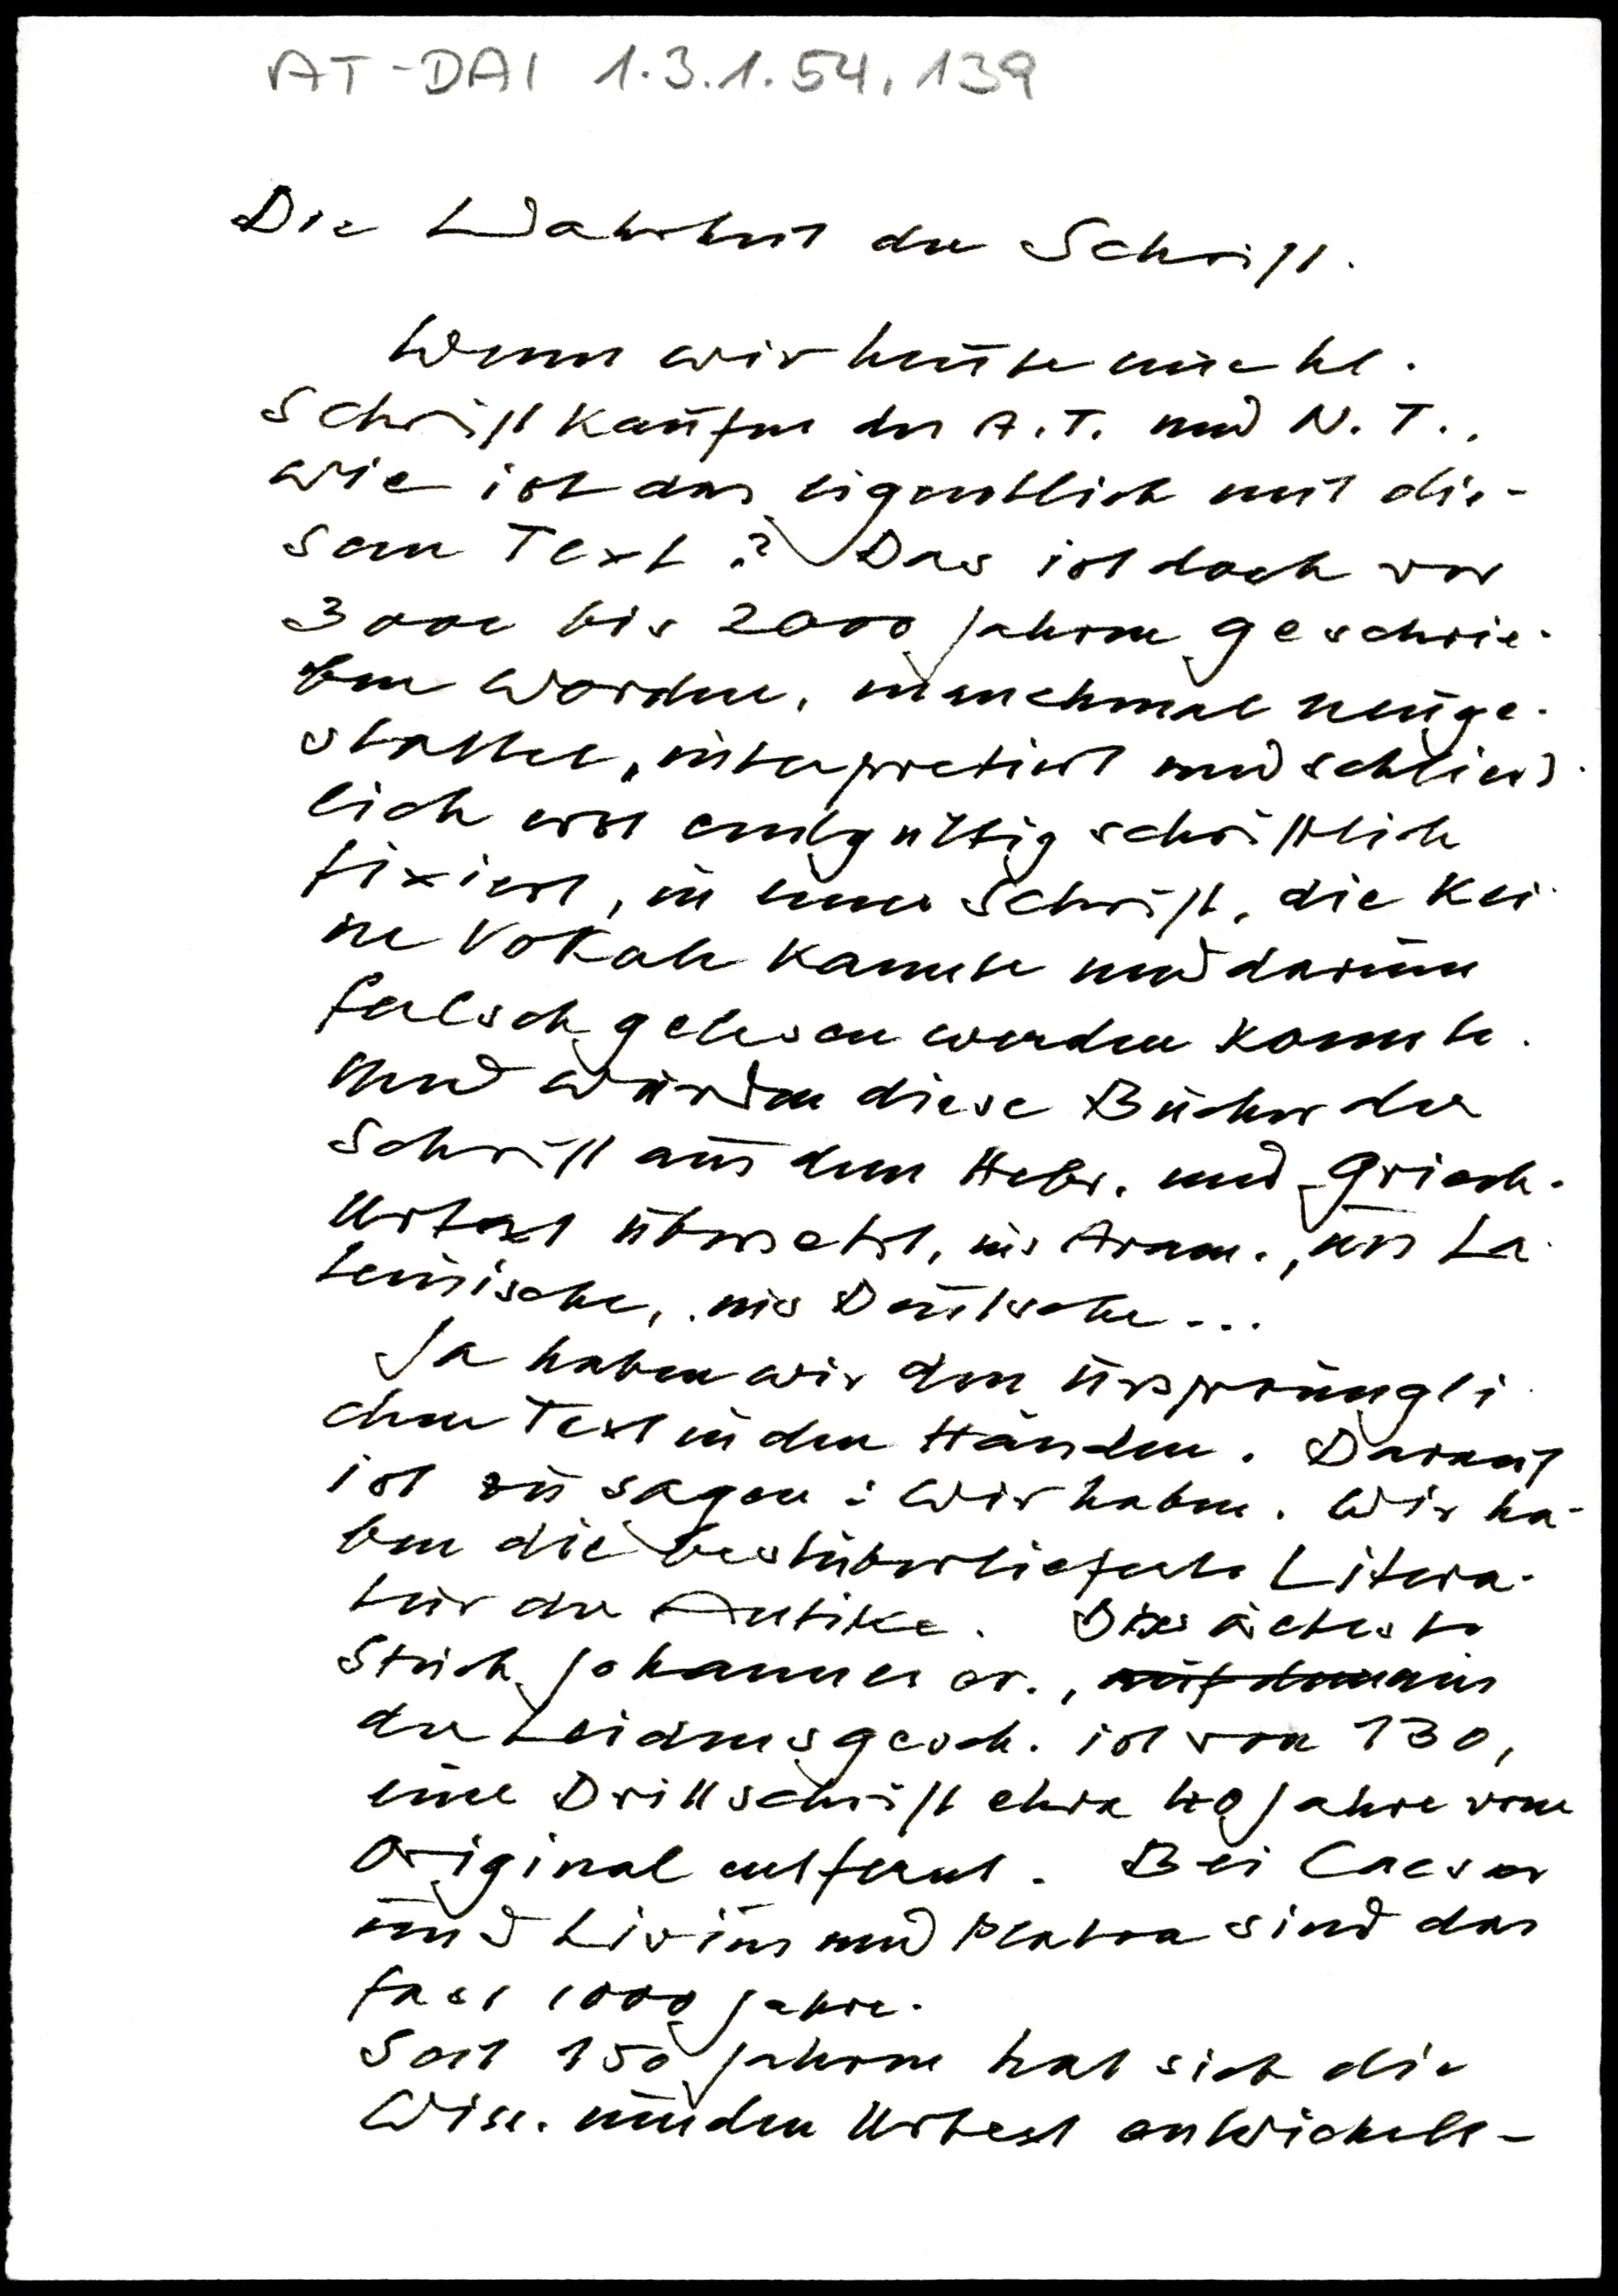 AT-DAI 1.3.1.54.139
Die Wahrheit der Schrift.
Wenn wir heute eine hl.
Schrift kaufen des A.T. und N.T.,
wie ist das eigentlich mit die-
sem Text? Das ist doch vor
3000 bis 2000 Jahren geschrie-
ben worden, manchmal neuge-
staltet, interpretiert und schliess-
lich erst endgültig schriftlich
fixiert, in einer Schrift, die kei-
ne Vokale kannte und darum
falsch gelesen werden konnte.
Und wurden diese Bücher der
Schrift aus dem Hebr. und Griech.
Urtext übersetzt, ins Aram., ins La-
teinische, ins Deutsche...
Ja haben wir den ursprüngli-
chen Text in den Händen. Darauf
ist zu sagen: Wir haben. Wir ha-
ben die bestüberlieferte Litera-
tur der Antike. Das älteste
Stück Johannes ev., aus
der Leidensgesch. ist von 130,
eine Drittschrift etwa 40 Jahre vom
Original entfernt. Bei Caesar
und Livius und Platon sind das
fast 1000 Jahre.
Seit 150 Jahren hat sich die
Wiss. um den Urtext entwickelt-